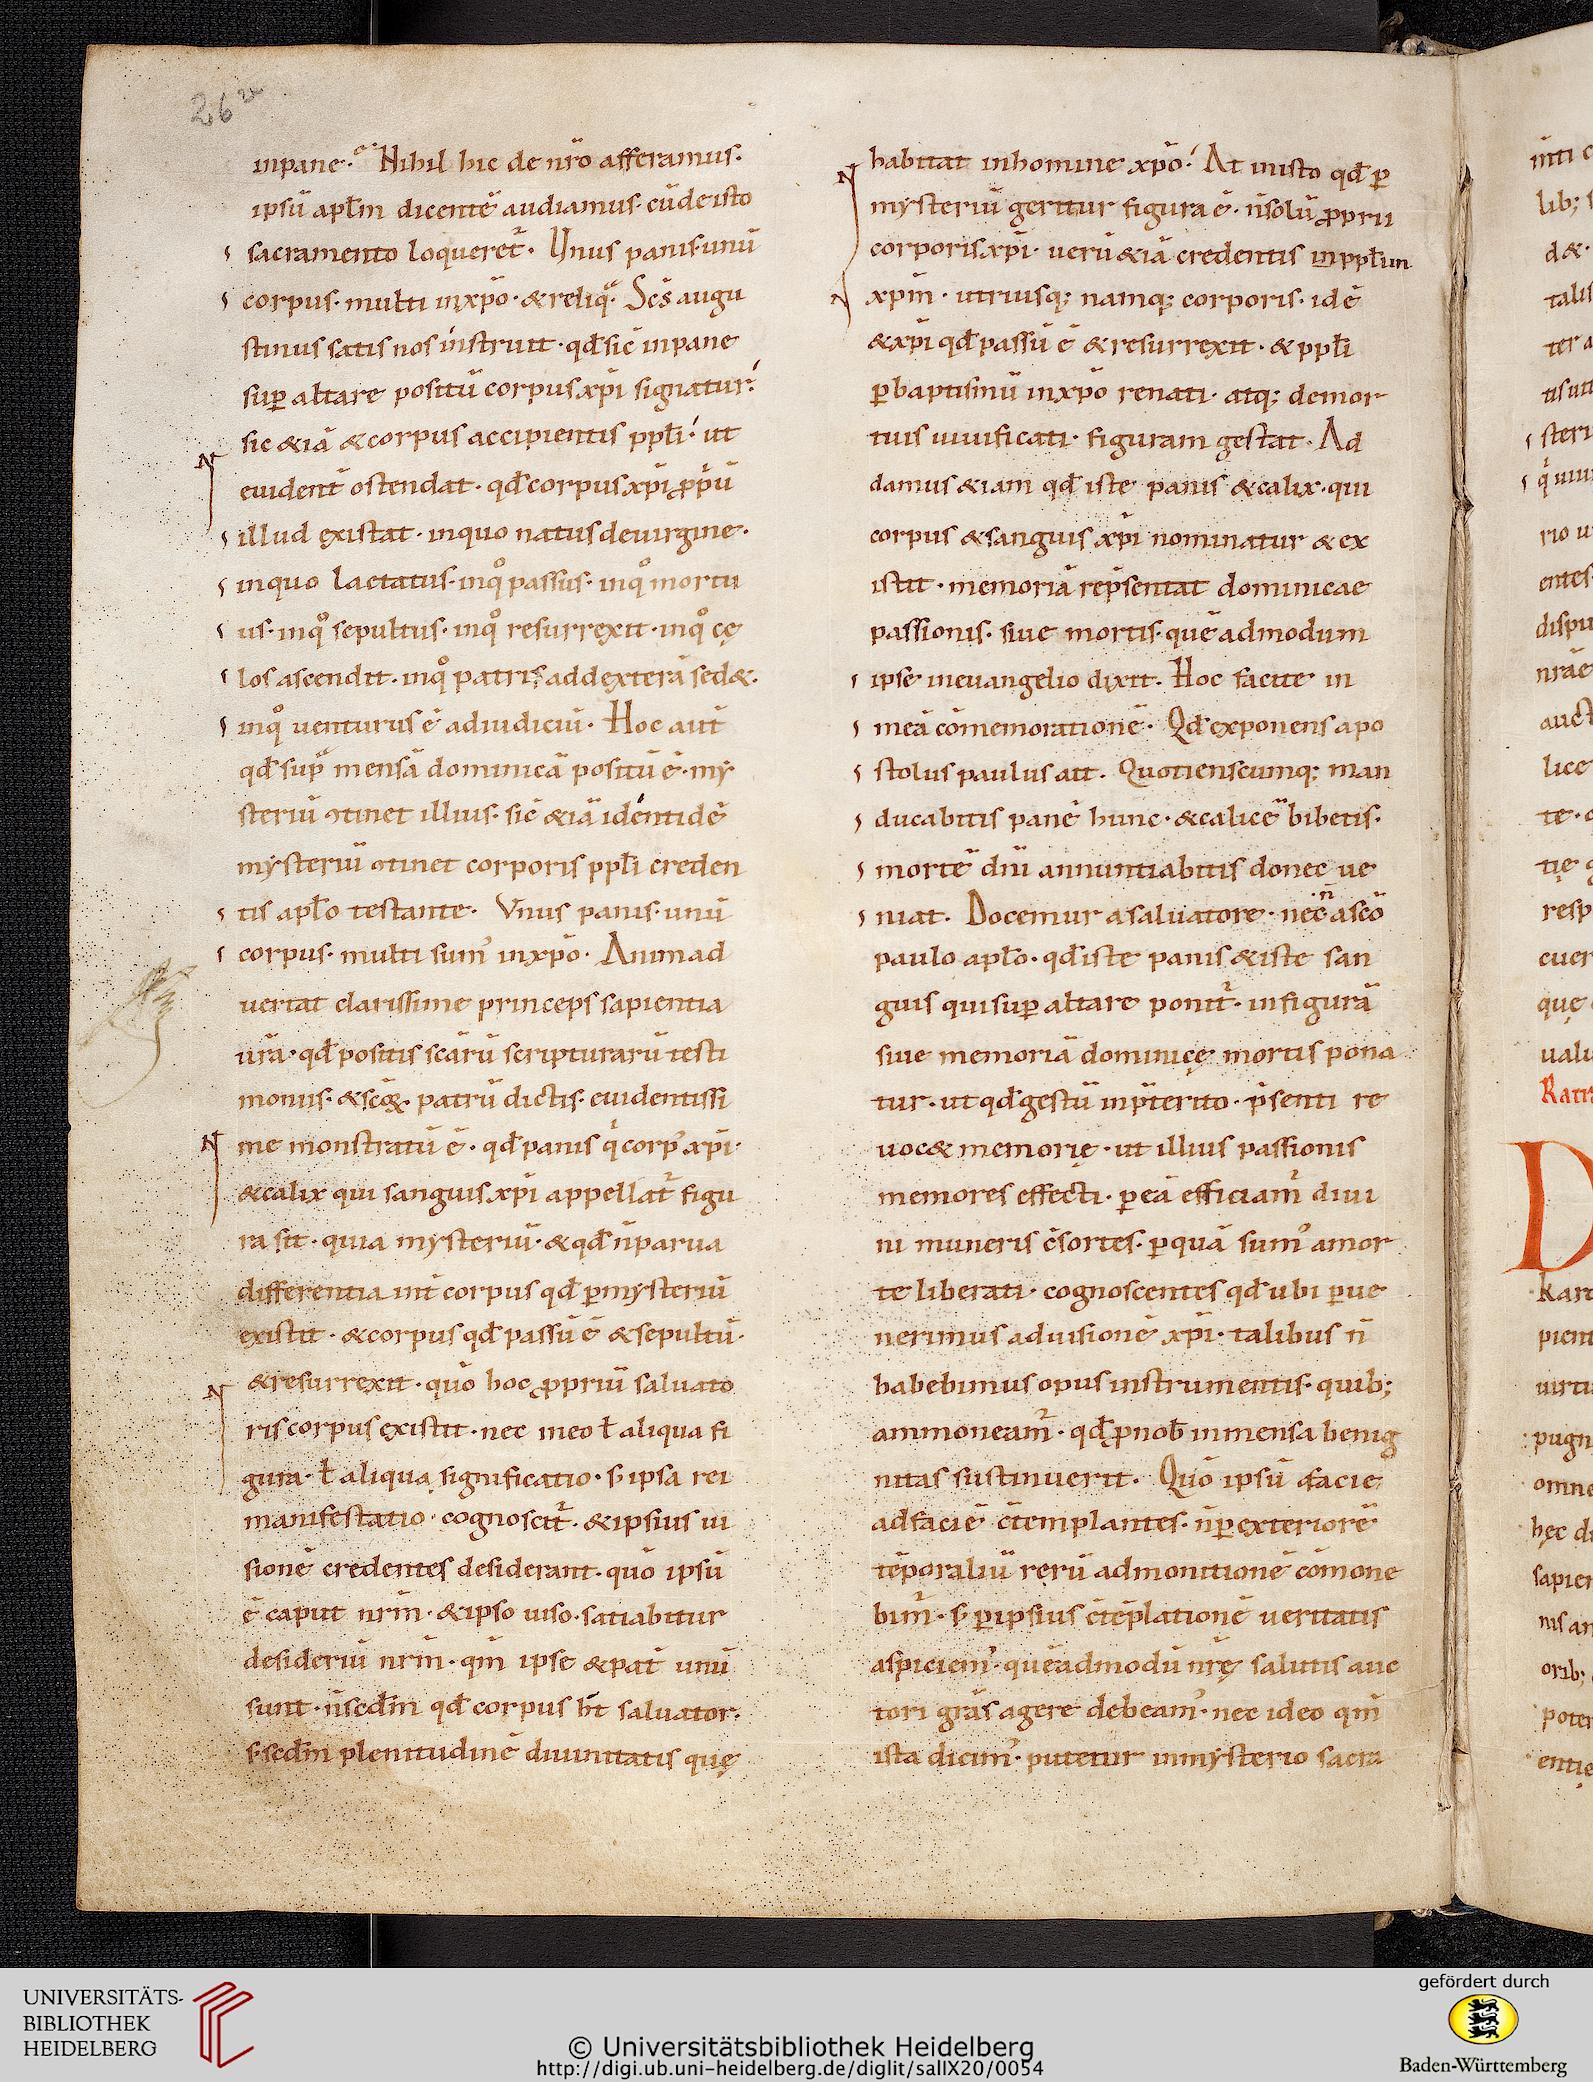 26 va
inpane· Nihil hic de nr̄o afferamus·
ipsū apl̄m dicentē audiamus· cū deisto
sacramento loqueret᷑· Unus panis· unū
corpus· multi inxp̄o· & reliq̄· Sc̄s augu
stinus satis nos instruit· qd̄ sic̄ inpane
sup̱ altare positū corpus xp̄i signatur·
sic &iā &corpus accipientis ppl̄i· ut
euident̄ ostendat· qd̄ corpus xp̄i ꝓpriū
illud existat· inquo natus deuirgine·
inquo lactatus· inqͦ passus· inqͦ mortu
us· inqͦ sepultus· inqͦ resurrexit· inqͦ cę
los ascendit· inqͦ patris addexterā sed&·
inqͦ uenturus ē adiudiciū· Hoc aut̄
qd̄ sup̄ mensā dominicā positū ē· my
steriū ꝯtinet illius· sic̄ &iā idēntidē
mysteriū ꝯtinet corporis ppl̄i creden
tis apl̄o testante· Vnus panis· unū
corpus· multi sum᷒ inxp̄o· Animad
uertat clarissime princeps sapientia
ur̄a· qd̄ positis scārū scripturarū testi
moniis· & scōꝝ patrū dictis· euidentissi
me monstratū ē· qd̄ panis qͥ corp᷒ xp̄i·
& calix qui sanguis xp̄i appellat᷑ figu
ra sit· quia mysteriū· & qd̄ n̄ parua
differentia int̄ corpus qd̄ ꝑmysteriū
existit· & corpus qd̄ passū ē & sepultū·
& resurrexit· quō hoc ꝓpriū saluato
ris corpus existit· nec ineo ł aliqua fi
gura· ł aliqua significatio· s̄ ipsa rei
manifestatio· cognoscit᷑· & ipsius ui
sionē credentes desiderant· quō ipsū
ē caput nr̄m· & ipso uiso· satiabitur
desideriū nr̄m· qm̄ ipse & pat̄ unū
sunt· n̄ scdm̄ qd̄ corpus ht̄ saluator·
s̄ scdm̄ plenitudinē diuinitatis quę
habitat inhomine xp̄o· At inisto qd̄ ꝑ
mysteriū geritur figura ē· n̄ solū ꝓprii
corporis xp̄i· uerū &iā credentis inppl̄i in
xpm̄· utriusq; namq; corporis· idē
& xp̄i qd̄ passū ē & resurrexit· & ppl̄i
ꝑbaptismū inxp̄o renati· atq; demor
tuis uiuificati· figuram gestat· Ad
damus &iam qd̄ iste panis & calix· qui
corpus & sanguis xp̄i nominatur & ex
istit· memoriā rep̄sentat dominicae
passionis· siue mortis· quē admodum
ipse ineuangelio dixit· Hoc facite in
meā cōmemorationē· Qd̄ exponens apo
stolus paulus ait· Quotienscumq; man
ducabitis panē hunc· & calicē bibetis·
mortē dn̄i annuntiabitis donec ue
niat· Docemur asaluatore· nec n̄ ascō
paulo apl̄o· qd̄ iste panis & iste san
guis qui sup̱ altare ponit᷑· infigurā
siue memoriā dominicę mortis pona
tur· ut qd̄ gestū inp̄terito· p̄senti re
uoc& memorię· ut illius passionis
memores effecti· ꝑ eā efficiam᷒ diui
ni muneris c̄sortes· ꝑquā sum᷒ amor
te liberati· cognoscentes qd̄ ubi ꝑue
nerimus aduisionē xp̄i· talibus n̄
habebimus opus instrumentis· quib;
ammoneam᷑· qd̄ ꝓnob̄ inmensa benig
nitas sustinuerit· Quō ipsū facie
adfaciē c̄templantes· n̄ ꝑ exteriorē
tēporaliū rerū admonitionē cōmone
bim᷑· s̄ ꝑ ipsius c̄tēplationē ueritatis
aspiciem᷒· quēadmodū nr̄ę salutis auc
tori grās agere debeam᷒· nec ideo qm̄
ista dicim᷒· putetur inmysterio sacra
UNIVERSITÄTS-
BIBLIOTHEK
HEIDELBERG
© Universitätsbibliothek Heidelberg
http://digi.ub.uni-heidelberg.de/diglit/salIX20/0054
gefördert durch
Baden-Württemberg